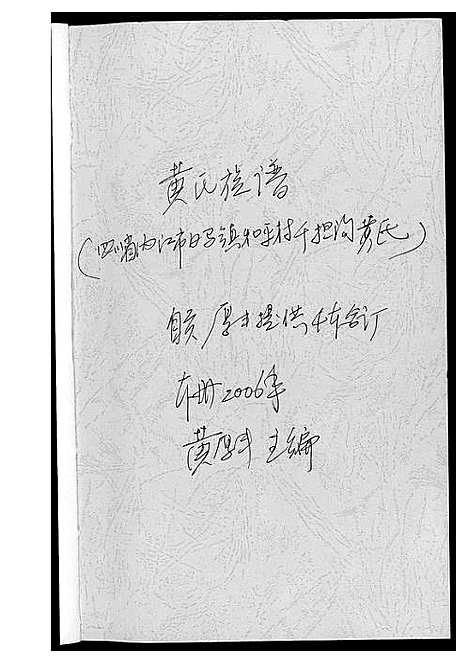 黄氏族谱
(四川省内江市白马镇和平村千担沟黄氏)
厚丰提供 本合订
本册2006年
黄厚丰 主编